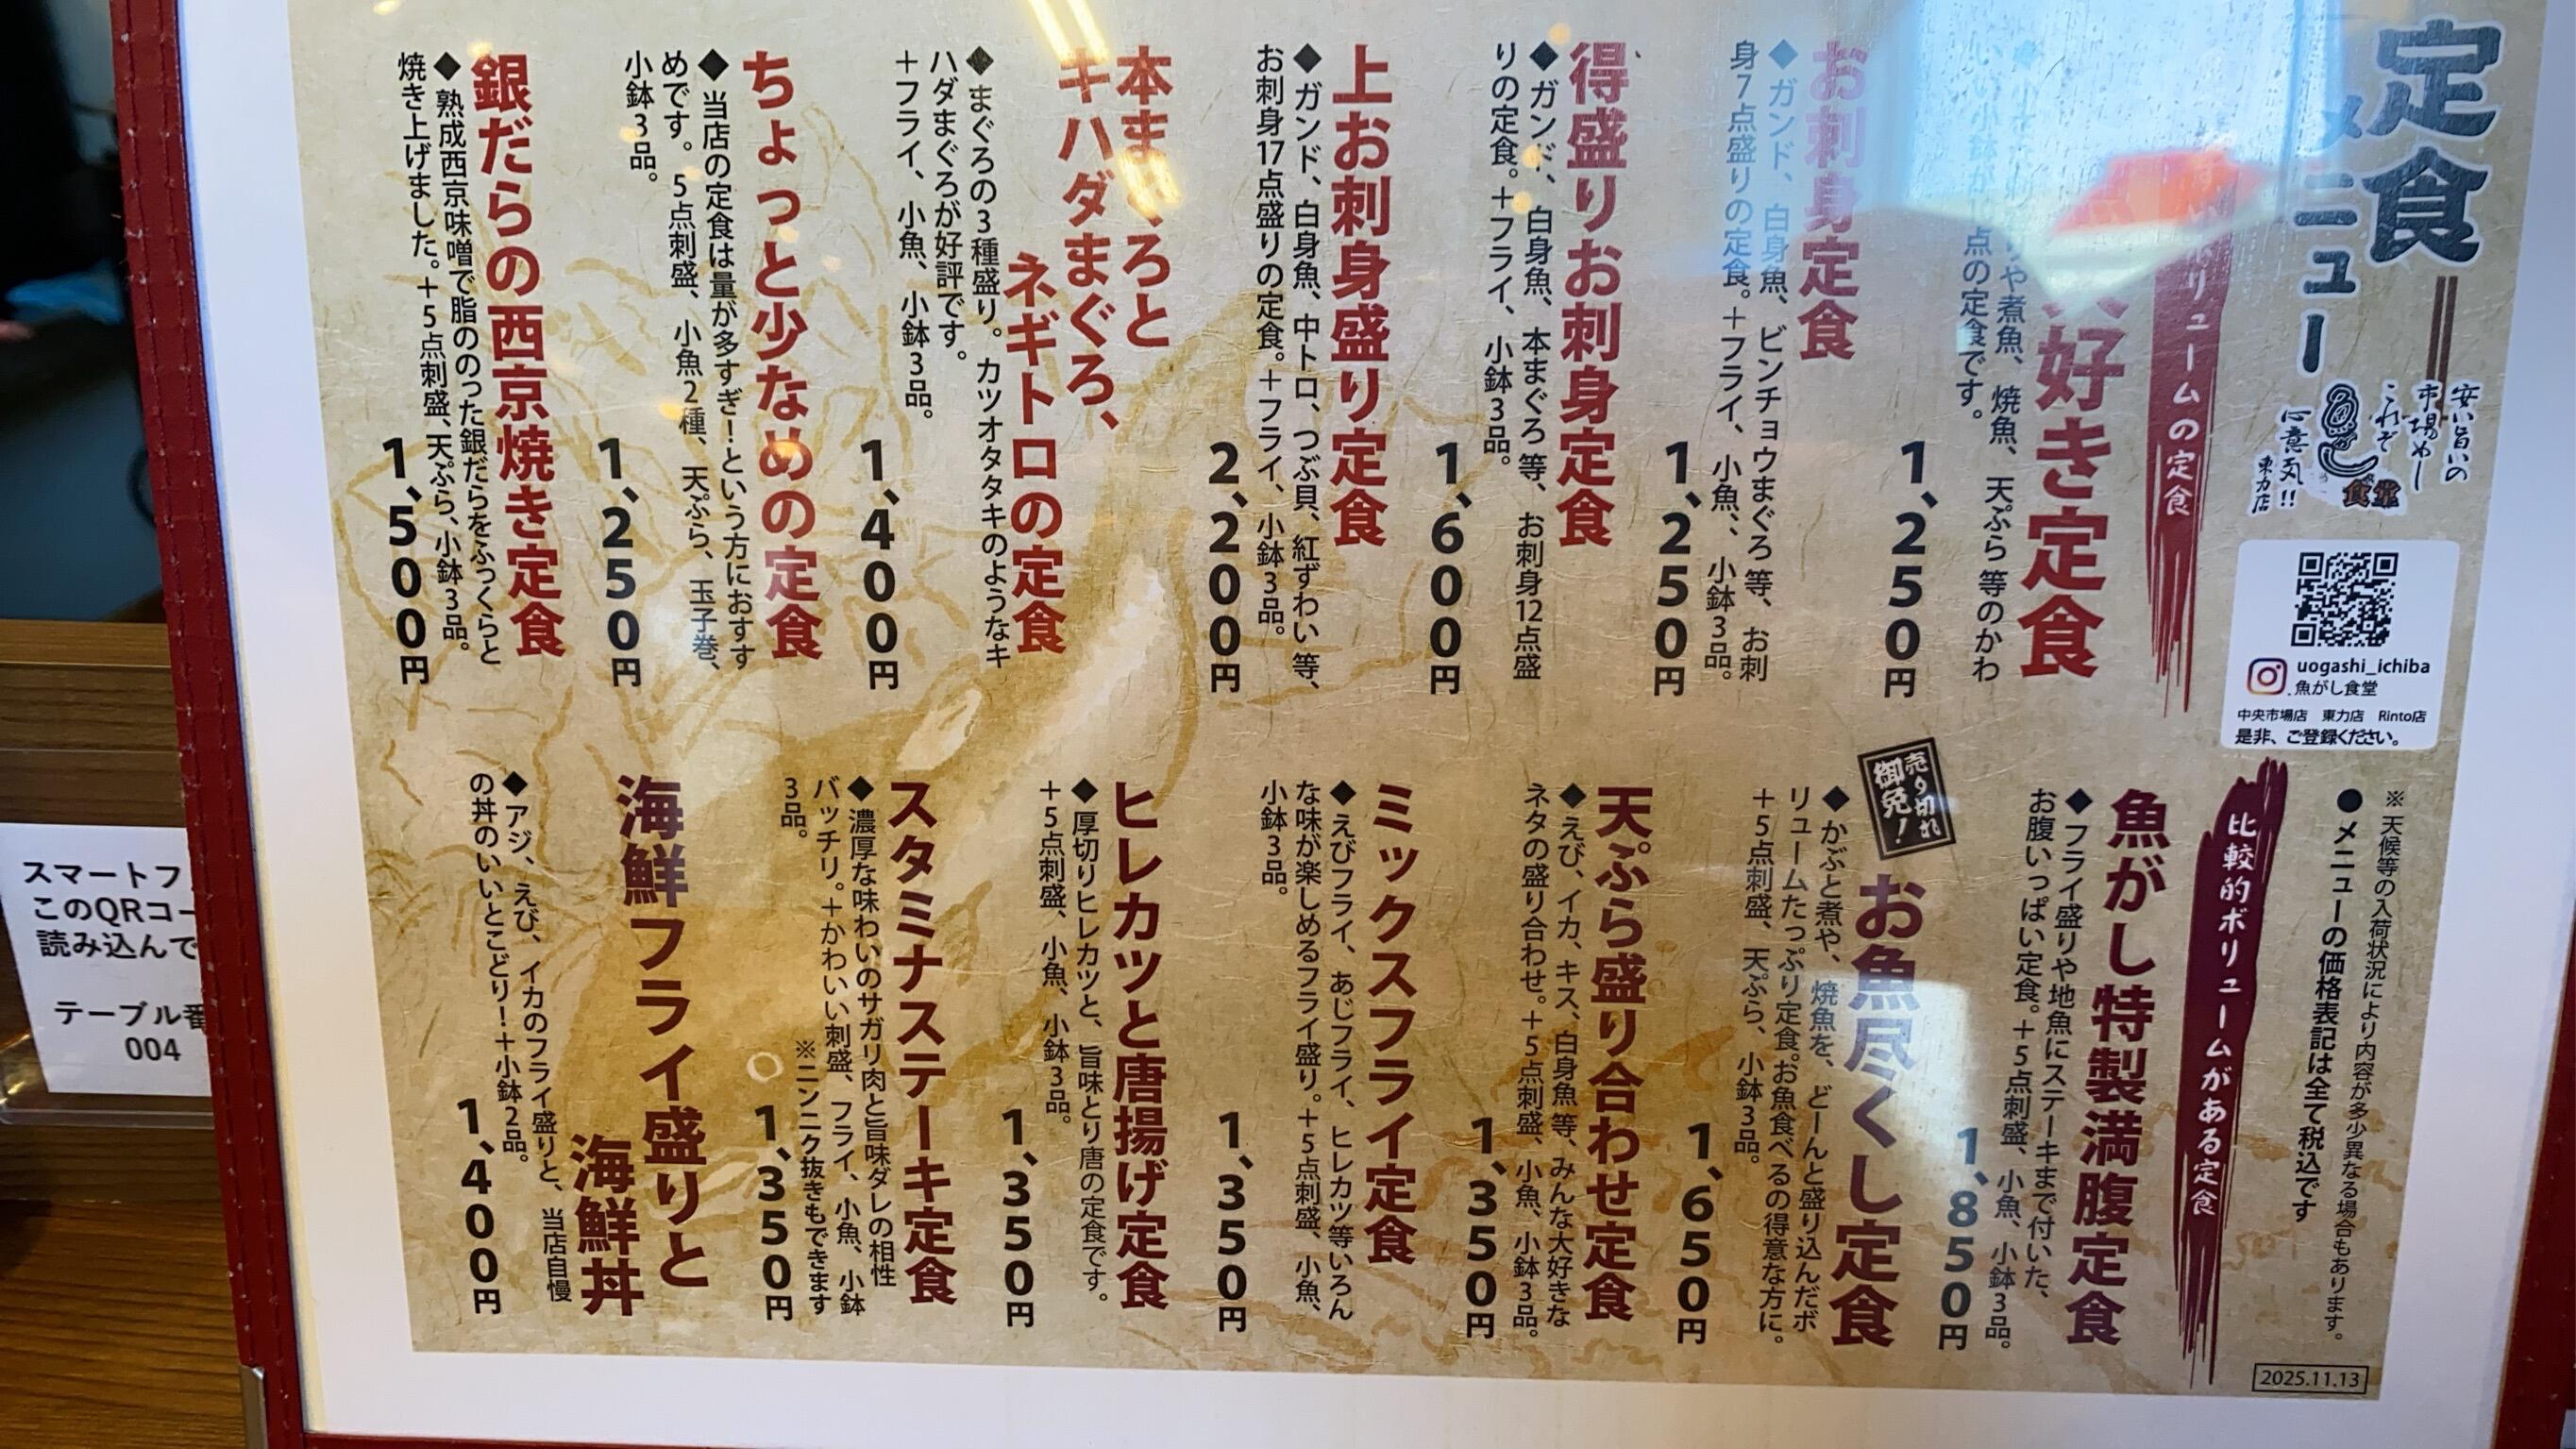 定食
メニュー
安い旨いの
市場めし
これぞ
心意気!!
東力店
食堂
uogashi_ichiba
魚がし食堂
中央市場店 東力店 Rinto店
是非、ご登録ください。
※天候等の入荷状況により内容が多少異なる場合もあります。
●メニューの価格表記は全て税込です
2025.11.13
リュームの定食
好き定食
や煮魚、焼魚、天ぷら等のかわ
いい小鉢が
点の定食です。
1、250円
お刺身定食
◆ガンド、白身魚、ビンチョウまぐろ等、お刺
身7点盛りの定食。+フライ、小魚、小鉢3品。
1、250円
得盛りお刺身定食
◆ガンド、白身魚、本まぐろ等、お刺身12点盛
りの定食。+フライ、小鉢3品。
1、600円
上お刺身盛り定食
◆ガンド、白身魚、中トロ、つぶ貝、紅ずわい等、
お刺身17点盛りの定食。+フライ、小鉢3品。
2、200円
本まぐろと
キハダまぐろ、
ネギトロの定食
◆まぐろの3種盛り。カツオタタキのようなキ
ハダまぐろが好評です。
+フライ、小魚、小鉢3品。
1、400円
ちょっと少なめの定食
◆当店の定食は量が多すぎ!という方におすす
めです。5点刺盛、小魚2種、天ぷら、玉子巻、
小鉢3品。
1、250円
銀だらの西京焼き定食
◆熟成西京味噌で脂ののった銀だらをふっくらと
焼き上げました。+5点刺盛、天ぷら、小鉢3品。
1、500円
比較的ボリュームがある定食
魚がし特製満腹定食
◆フライ盛りや地魚にステーキまで付いた、
お腹いっぱい定食。+5点刺盛、小魚、小鉢3品。
1、850円
売り切れ
御免!
お魚尽くし定食
◆かぶと煮や、焼魚を、どーんと盛り込んだボ
リュームたっぷり定食。お魚食べるの得意な方に。
+5点刺盛、天ぷら、小鉢3品。
1、650円
天ぷら盛り合わせ定食
◆えび、イカ、キス、白身魚等、みんな大好きな
ネタの盛り合わせ。+5点刺盛、小魚、小鉢3品。
1、350円
ミックスフライ定食
◆えびフライ、あじフライ、ヒレカツ等いろん
な味が楽しめるフライ盛り。+5点刺盛、小魚、
小鉢3品。
1、350円
ヒレカツと唐揚げ定食
◆厚切りヒレカツと、旨味とり唐の定食です。
+5点刺盛、小魚、小鉢3品。
1、350円
スタミナステーキ定食
◆濃厚な味わいのサガリ肉と旨味ダレの相性
バッチリ。+かわいい刺盛、フライ、小魚、小鉢
3品。
※ニンニク抜きもできます
1、350円
海鮮フライ盛りと
海鮮丼
◆アジ、えび、イカのフライ盛りと、当店自慢
の丼のいいとこどり!+小鉢2品。
1、400円
スマートフ
このQRコー
読み込んで
テーブル番
004